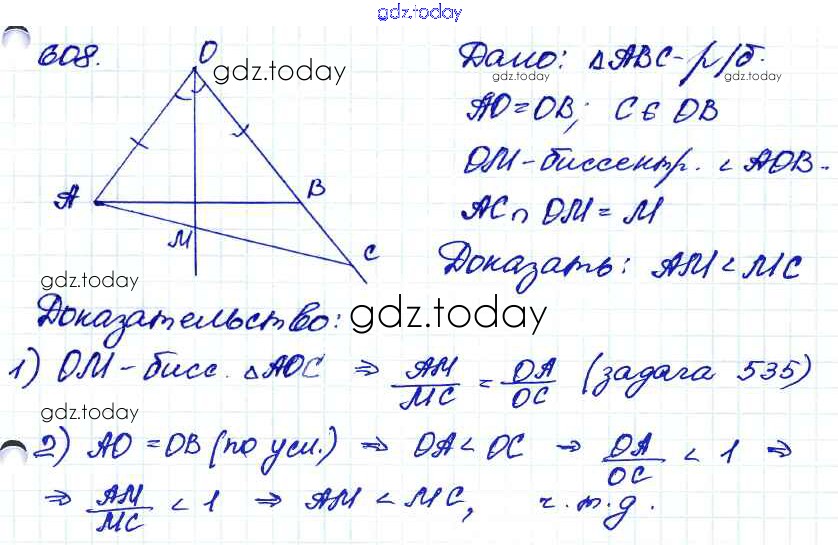 gdz.today
608.
O
gdz.today
Дано: △ABC-р/б.
gdz.today
gdz.today
AO=OB; C∈OB
OM-биссектр. ∠AOB.
A
B
AC∩OM=M
M
C
Доказать: AM<MC
gdz.today
Доказательство:
gdz.today
1) OM-бисс. △AOC ⇒ AM/MC = OA/OC (задача 535)
gdz.today
2) AO=OB (по усл.) ⇒ OA<OC → OA/OC < 1 ⇒
⇒ AM/MC < 1 ⇒ AM < MC, ч.т.д.